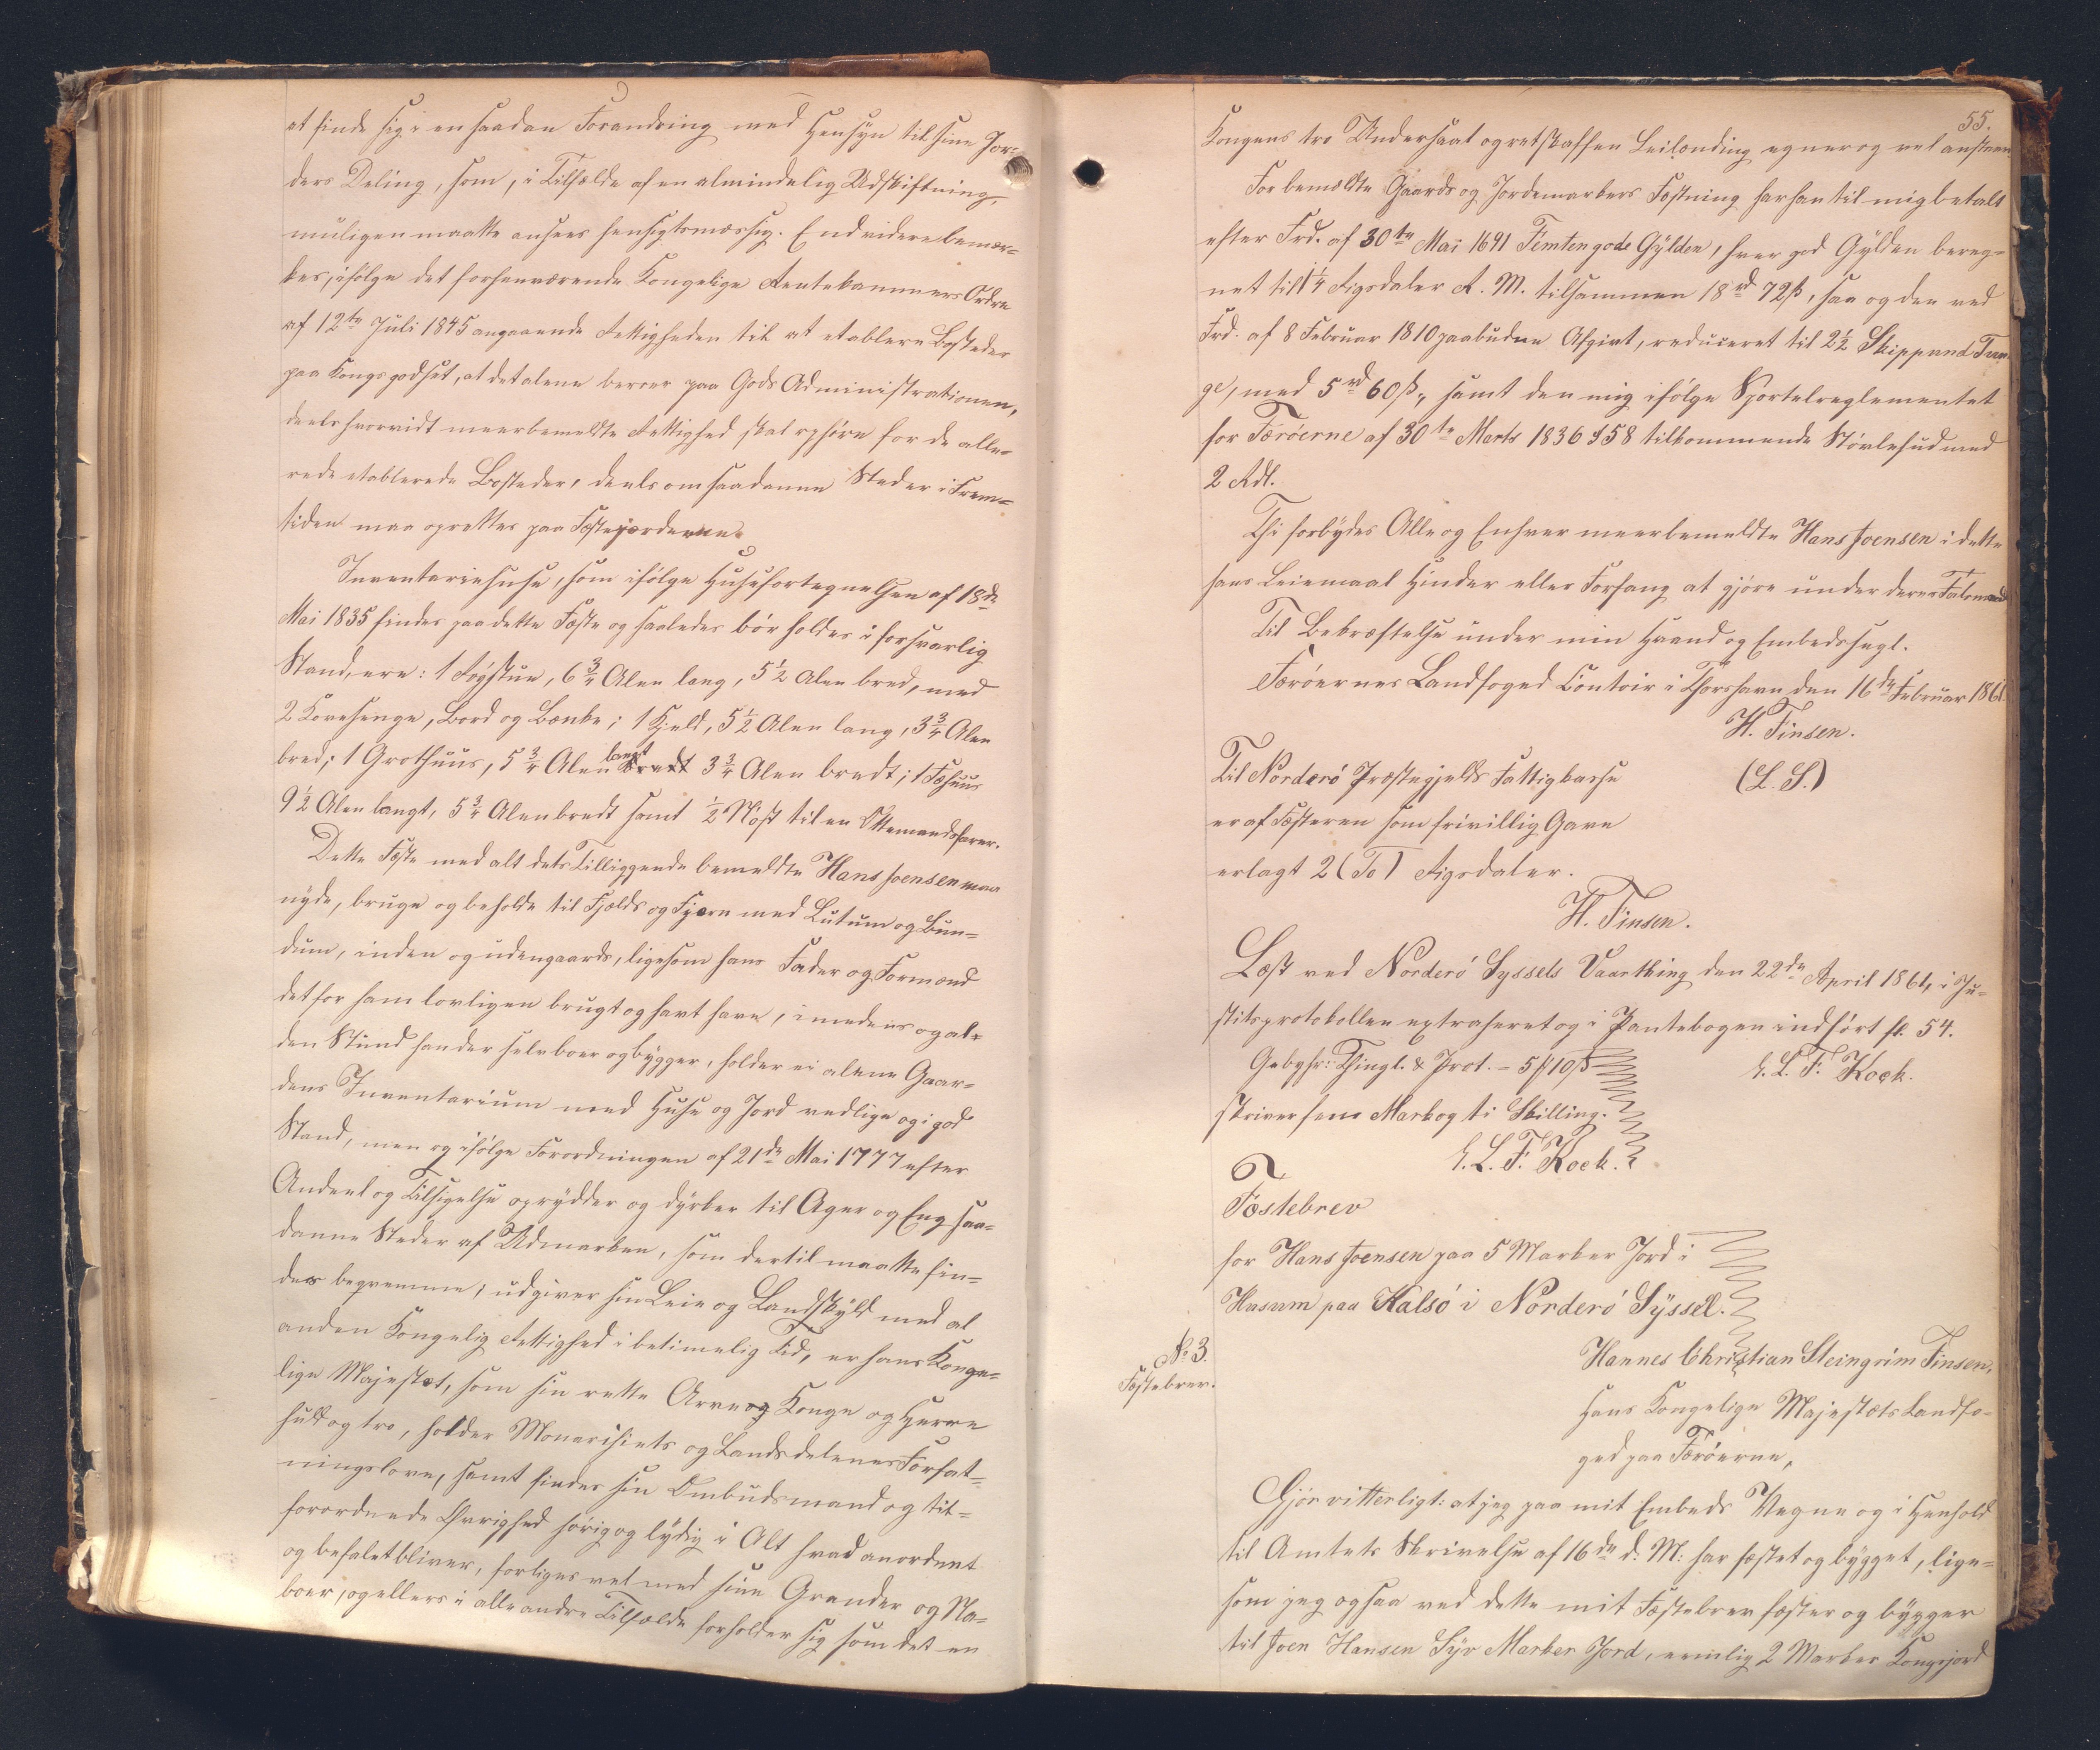 at finde sig i en saadan Forandring med Hensyn til sine Jor-
ders Deling, som, i Tilfælde af en almindelig Udskiftning,
muligen maatte ansees hensigtsmæssig. End videre bemær-
kes, ifølge det forhenværende Kongelige Rentekammers Ordre
af 12te Juli 1845 angaaende Rettigheden til at etablere Bosteder
paa Kongsgodset, at det alene beroer paa Gods Administrationen,
deels hvorvidt meerbemeldte Rettighed skal ophøre for de alle-
rede etablerede Bosteder, deels om saadanne Steder i Frem-
tiden maa oprettes paa Fæstejorderne.
Inventariehuse, som ifølge Huusfortegnelsen af 18de
Mai 1835 findes paa dette Fæste og saaledes bør holdes i forsvarlig
Stand, ere: 1 Røgstue, 6 3/4 Alen lang, 5 1/2 Alen bred, med
2 Kovesenge, Bord og Bænke; 1 Hjeld, 5 1/2 Alen lang, 3 3/4 Alen
bred; 1 Grothuus, 5 3/4 Alen langt 3 3/4 Alen bredt; 1 Fæhuus
9 1/2 Alen langt, 5 3/4 Alen bredt samt 1/2 Nøst til en Ottemandsfarer.
Dette Fæste med alt dets Tilliggende bemeldte Hans Joensen maa
nyde, bruge og beholde til Fjelds og Fjære med Lutum og Lun-
dum, inden og udengaards, ligesom hans Fader og Formand
det for ham lovligen brugt og havt have, imedens og al
den Stund han der selv boer og bygger, holder ei alene Gaar-
dens Inventarium med Huse og Jord vedlige og i god
Stand, men og ifølge Forordningen af 21de Mai 1777 efter
Andeel og Tilsigelse oprydder og dyrker til Ager og Eng saa-
danne Steder af Udmarken, som dertil maatte fin-
des beqvemme, udgiver sin Leie og Landskyld med al
anden Kongelig Rettighed i betimelig Tid, er hans Konge-
lige Majestæt, som sin rette Arve og Konge og Herre
huld og tro, holder Monarchiets og Landsdelenes Forfat-
ningslove, samt findes sin Ombudsmand og til-
forordnede Øvrighed hørig og lydig i Alt hvad anordnet
og befalet bliver, forliges vel med sine Grander og Na-
boer, og ellers i alle andre Tilfælde forholder sig som det en
55.
Kongens tro Undersaat og retskaffen Leilænding egner og vel anstaaer.
For bemeldte Gaards og Jordemarkers Fæstning har han til mig betalt
efter Frd. af 30te Mai 1691 Femten gode Gylden, hver god Gylden bereg-
net til 1 1/4 Rigsdaler R. M. tilsammen 18 rd 72 ß, saa og den ved
Frd. af 8 Februar 1810 paabudne Afgivt, reduceret til 2 1/2 Skippund Tran-
ge, med 5 rd 60 ß, samt den mig ifølge Sportelreglementet
for Færøerne af 30te Marts 1836 § 58 tilkommende Støvlehud med
2 Rdl.
Thi forbydes Alle og Enhver meerbemeldte Hans Joensen i dette
hans Leiemaal Hinder eller Forfang at gjøre under deres Falsmaal
Til Bekræftelse under min Haand og Embedssegl.
Færøernes Landfoged Contoir i Thorshavn den 16de Februar 1861.
H. Finsen.
(L. S.)
Til Norderø Præstegjelds Fattigkasse
er af Fæsteren som frivillig Gave
erlagt 2 (To) Rigsdaler.
H. Finsen.
Læst ved Norderø Syssels Vaarthing den 22de April 1861, i Ju-
stitsprotokollen extraheret og i Pantebogen indført fl. 54.
E. L. F. Kock.
Gebyhr: Thingl. & Prot. = 5 ℳ 10 ß
skriver fem Mark og ti Skilling.
E. L. F. Kock.
Fæstebrev
for Hans Joensen paa 5 Marker Jord i
Husum paa Kalsø i Norderø Syssel.
No 3.
Fæstebrev.
Hannes Christian Steingrim Finsen,
Hans Kongelige Majestæts Landfo-
ged paa Færøerne,
Gjør vitterligt: at jeg paa mit Embeds Vegne og i Henhold
til Amtets Skrivelse af 16de d: M: har fæstet og bygget, lige-
som jeg ogsaa ved dette mit Fæstebrev fæster og bygger
til Joen Hansen Syv Marker Jord, nemlig 2 Marker Kongsjord